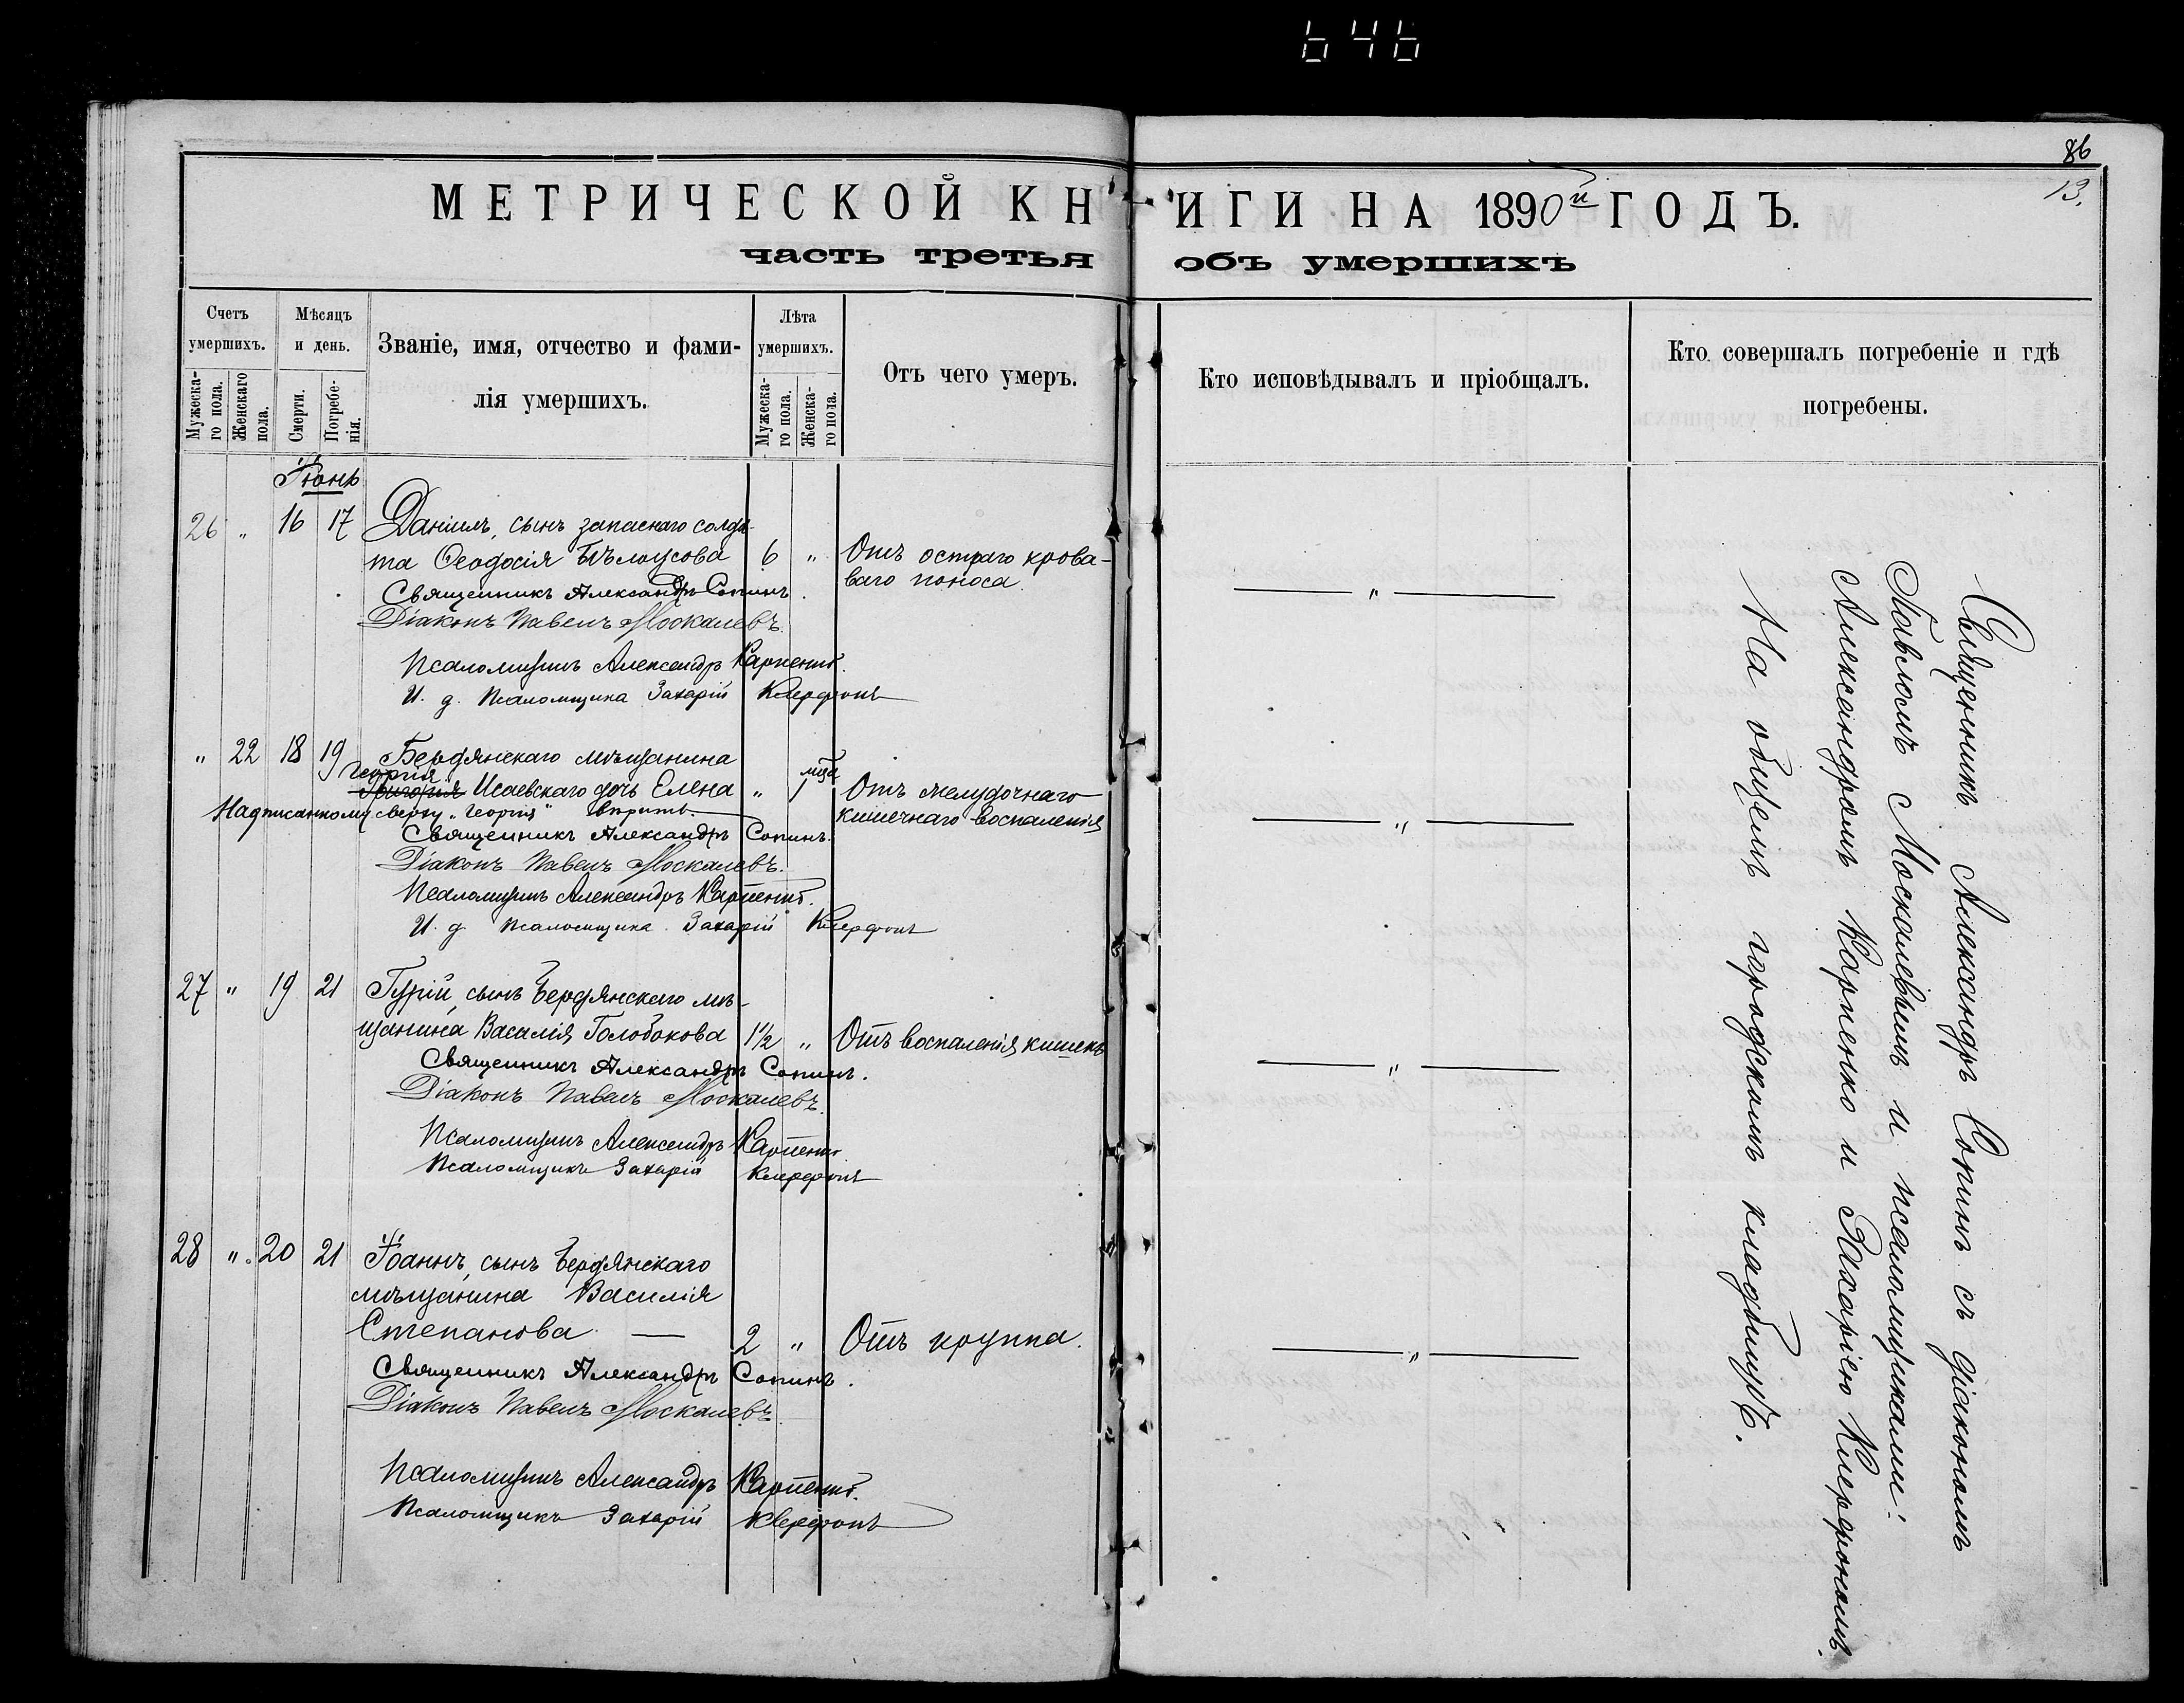 646
86
13.
МЕТРИЧЕСКОЙ КНИГИ НА 1890й ГОДЪ.
часть третья объ умершихъ
Счетъ умершихъ.
Мужеска-го пола.
Женскаго пола.
Мѣсяцъ и день.
Смерти.
Погребе-нія.
Званіе, имя, отчество и фами-
лія умершихъ.
Лѣта умершихъ.
Мужеска-го пола.
Женска-го пола.
Отъ чего умеръ.
Кто исповѣдывалъ и пріобщалъ.
Кто совершалъ погребеніе и гдѣ
погребены.
Іюнь
26 " 16 17 Даніилъ, сынъ запаснаго солда-
та Ѳеодосія Бѣлоусова 6 " Отъ остраго крова-
ваго поноса
Священникъ Александръ Сопинъ.
Діаконъ Павелъ Москалевъ.
Псаломщикъ Александръ Карпенко.
И. д. Псаломщика Захарій Клерфонъ
" 22 18 19 Бердянскаго мѣщанина
Георгія
Григорія Исаевскаго дочь Елена " 1 мца Отъ желудочнаго
кишечнаго воспаленія
Надписанному сверху „Георгія" вѣрить.
Священникъ Александръ Сопинъ.
Діаконъ Павелъ Москалевъ.
Псаломщикъ Александръ Карпенко.
И. д. Псаломщика Захарій Клерфонъ
27 " 19 21 Гурій, сынъ Бердянскаго мѣ-
щанина Василія Голобокова 1½ " Отъ воспаленія кишекъ
Священникъ Александръ Сопинъ.
Діаконъ Павелъ Москалевъ.
Псаломщикъ Александръ Карпенко
Псаломщикъ Захарій Клерфонъ
28 " 20 21 Іоаннъ, сынъ Бердянскаго
мѣщанина Василія
Степанова — 2 " Отъ круппа.
Священникъ Александръ Сопинъ.
Діаконъ Павелъ Москалевъ.
Псаломщикъ Александръ Карпенко.
Псаломщикъ Захарій Клерфонъ
Священникъ Александръ Сопинъ съ діакономъ
Павломъ Москалевымъ и псаломщиками:
Александромъ Карпенко и Захаріею Клерфономъ.
На общемъ городскомъ кладбищѣ.